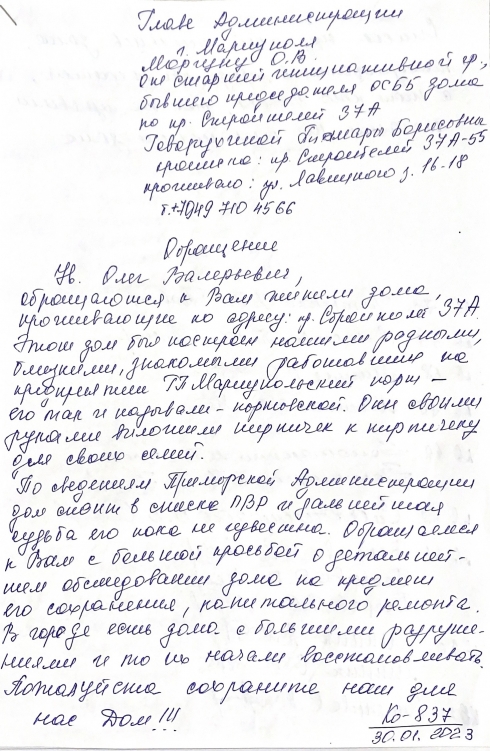 Главе Администрации
г. Мариуполя
Моргуну О.В.
От старшей инициативной гр,
бывшего председателя ОСББ дома
по пр. Строителей 37А
Тамары Борисовны
прописана: пр. Строителей 37А-55
проживаю: ул. Лавицкого д. 16-18
т.+7949 710 4566
Обращение
Ув. Олег Валерьевич,
обращаются к Вам жители дома,
проживающие по адресу: пр. Строителей 37А.
Этот дом был построен нашими родными,
близкими, знакомыми работавшие на
предприятии ГП Мариупольский порт –
его так и называли – портовской. Они своими
руками выложили кирпичек к кирпичеку
для своих семей.
По сведениям Приморской Администрации
дом стоит в списке ПВР и дальнейшая
судьба его пока не известна. Обращаемся
к Вам с большой просьбой о детальней-
шем обследовании дома на предмет
его сохранения, капитального ремонта.
В городе есть дома с большими разруше-
ниями и то их начали восстанавливать.
Пожалуйста сохраните наш для
нас Дом!!!
Ко-837
30.01.2023